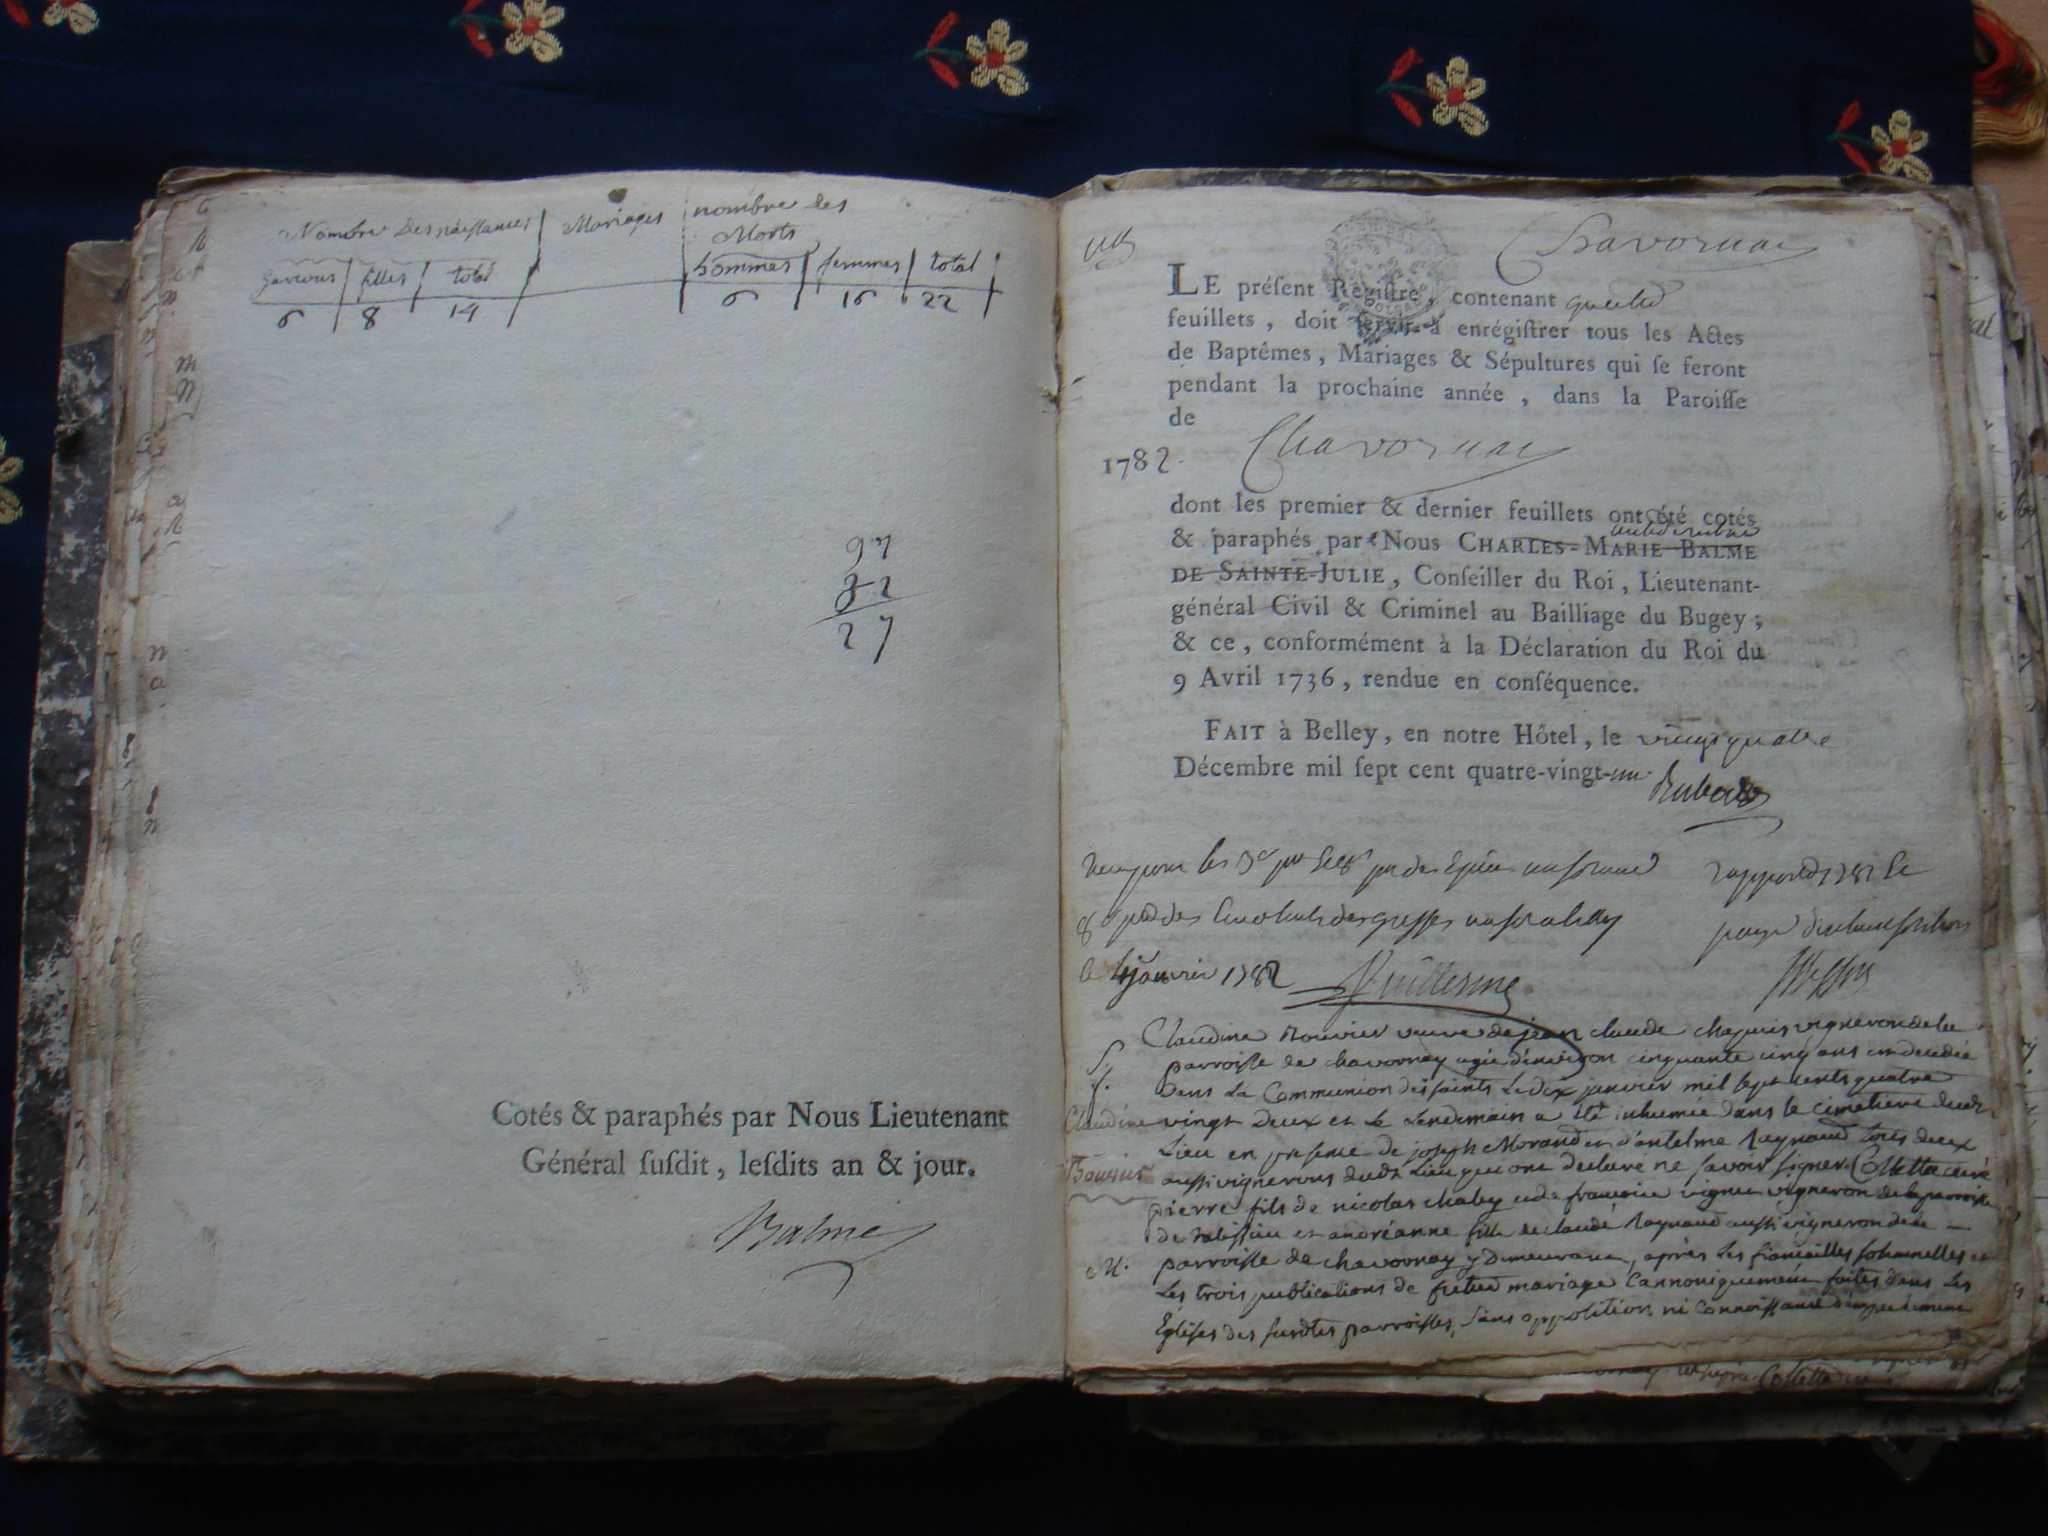 Nombre des naissances | Mariages | nombre des
Morts
garcons | filles | total | hommes | femmes | total
6 | 8 | 14 | 6 | 16 | 22
97
27
Cotés & paraphés par Nous Lieutenant
Général ſuſdit, leſdits an & jour.
Balme
Chavornai
LE préſent Regiſtre, contenant quatre
feuillets, doit ſervir à enrégiſtrer tous les Actes
de Baptêmes, Mariages & Sépultures qui ſe feront
pendant la prochaine année, dans la Paroiſſe
de
Chavornai
1782.
dont les premier & dernier feuillets ont été cotés
& paraphés par Nous CHARLES-MARIE BALME
DE SAINTE-JULIE, Conſeiller du Roi, Lieutenant-
général Civil & Criminel au Bailliage du Bugey;
& ce, conformément à la Déclaration du Roi du
9 Avril 1736, rendue en conſéquence.
FAIT à Belley, en notre Hôtel, le vingt quatre
Décembre mil ſept cent quatre-vingt-un
janvier 1782
Claudine Bouvier veuve de jean claude chapuis vigneron de la
S parroisse de chavornay agée d'environ cinquante cinq ans est decedée
f. Dans La Communion des saints Le dix janvier mil sept cents quatre
Claudine vingt Deux et Le Lendemain a été inhumée dans le cimetiere dudt
Lieu en presence de joseph Morand et d'antelme Raynaud tous deux
Bouvier aussi vignerons dudt Lieu qui ont declaré ne savoir signer Colletta curé
pierre fils de nicolas chaley et de francoise vignes vigneron de la parroisse
de talissieu et andréanne fille de claude Raynaud aussi vigneron de la
M. parroisse de chavornay y Demeurant, après les fiancailles solennelles et
Les trois publications de futur mariage Cannoniquement faites dans Les
Églises des susdtes parroisses, sans oppolition ni connoissance d'empechement